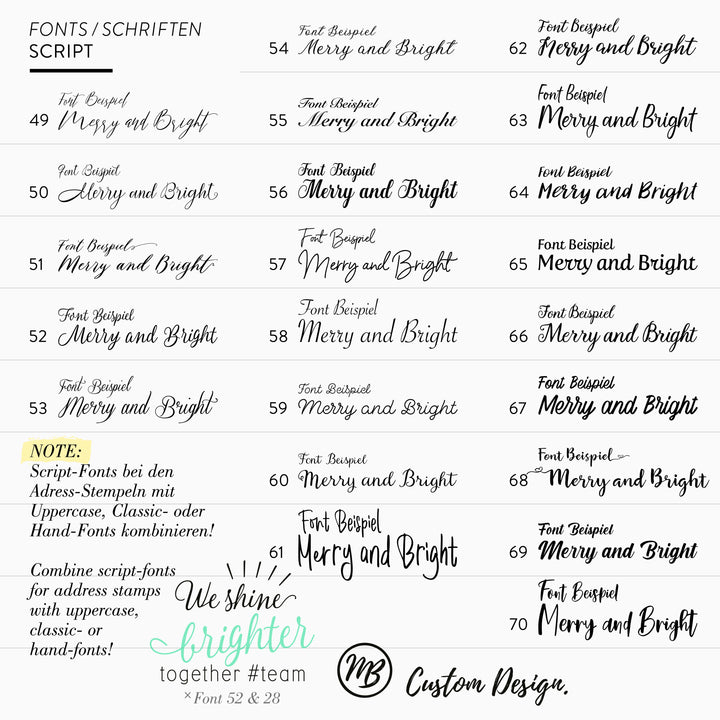 FONTS / SCHRIFTEN
SCRIPT
49 Font Beispiel
Merry and Bright
50 Font Beispiel
Merry and Bright
51 Font Beispiel
Merry and Bright
52 Font Beispiel
Merry and Bright
53 Font Beispiel
Merry and Bright
NOTE:
Script-Fonts bei den
Adress-Stempeln mit
Uppercase, Classic- oder
Hand-Fonts kombinieren!
Combine script-fonts
for address stamps
with uppercase,
classic- or
hand-fonts!
54 Font Beispiel
Merry and Bright
55 Font Beispiel
Merry and Bright
56 Font Beispiel
Merry and Bright
57 Font Beispiel
Merry and Bright
58 Font Beispiel
Merry and Bright
59 Font Beispiel
Merry and Bright
60 Font Beispiel
Merry and Bright
61 Font Beispiel
Merry and Bright
We shine
brighter
together #team
*Font 52 & 28
62 Font Beispiel
Merry and Bright
63 Font Beispiel
Merry and Bright
64 Font Beispiel
Merry and Bright
65 Font Beispiel
Merry and Bright
66 Font Beispiel
Merry and Bright
67 Font Beispiel
Merry and Bright
68 Font Beispiel
Merry and Bright
69 Font Beispiel
Merry and Bright
70 Font Beispiel
Merry and Bright
MB Custom Design.